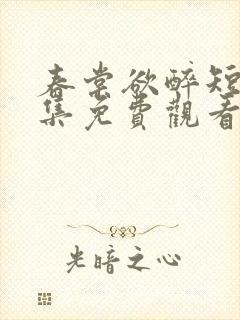 春棠欲醉短
集免費觀看
光暗之心